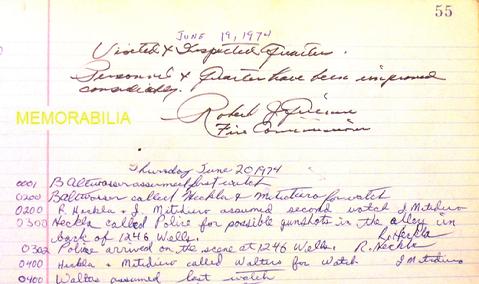 55
June 19, 1974
Visited & Inspected Quarter.
Personnel & Quarter have been improved
considerably.
Robert J. Quinn
Fire Commissioner
MEMORABILIA
Thursday June 20 1974
0001 B Altwasser assumed first watch
0200 Baltwasser called Heckla & Mitidiero for watch
0200 R. Heckla & J. Mitidiero assumed second watch J Mitidiero
0300 Heckla called Police for possible gunshots in the alley in
back of 1246 Wells. R. Heckla
0302 Police arrived on the scene at 1246 Wells. R. Heckla
0400 Heckla & Mitidiero called Walters for watch J Mitidiero
0400 Walters assumed last watch